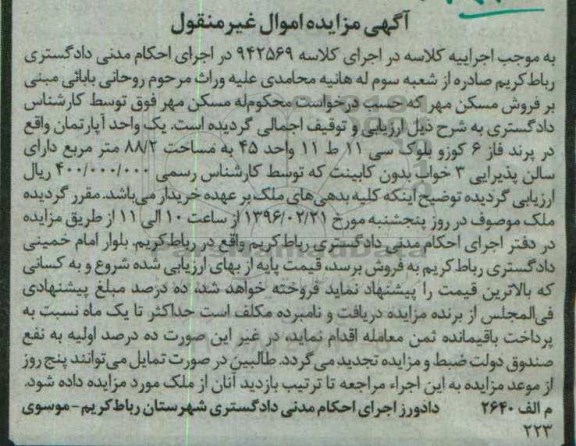 آگهی مزایده اموال غیر منقول
به موجب اجراییه کلاسه در اجرای کلاسه ۹۴۲۵۶۹ در اجرای احکام مدنی دادگستری
رباط کریم صادره از شعبه سوم له هانیه محامدی علیه وراث مرحوم روحانی بابائی مبنی
بر فروش مسکن مهر که حسب درخواست محکوم‌له مسکن مهر فوق توسط کارشناس
دادگستری به شرح ذیل ارزیابی و توقیف اجمالی گردیده است. یک واحد آپارتمان واقع
در پرند فاز ۶ کوزو بلوک سی ۱۱ ط ۱۱ واحد ۴۵ به مساحت ۸۸/۲ متر مربع دارای
سالن پذیرایی ۳ خواب بدون کابینت که توسط کارشناس رسمی ۴۰۰/۰۰۰/۰۰۰ ریال
ارزیابی گردیده توضیح اینکه کلیه بدهی‌های ملک بر عهده خریدار می‌باشد. مقرر گردیده
ملک موصوف در روز پنجشنبه مورخ ۱۳۹۶/۰۲/۲۱ از ساعت ۱۰ الی ۱۱ از طریق مزایده
در دفتر اجرای احکام مدنی دادگستری رباط کریم واقع در رباط‌کریم، بلوار امام خمینی
دادگستری رباط کریم به فروش برسد، قیمت پایه از بهای ارزیابی شده شروع و به کسانی
که بالاترین قیمت را پیشنهاد نماید فروخته خواهد شد، ده درصد مبلغ پیشنهادی
فی‌المجلس از برنده مزایده دریافت و نامبرده مکلف است حداکثر تا یک ماه نسبت به
پرداخت باقیمانده ثمن معامله اقدام نماید، در غیر این صورت ده درصد اولیه به نفع
صندوق دولت ضبط و مزایده تجدید می‌گردد. طالبین در صورت تمایل می‌توانند پنج روز
از موعد مزایده به این اجراء مراجعه تا ترتیب بازدید آنان از ملک مورد مزایده داده شود.
م الف ۲۶۴۰ دادورز اجرای احکام مدنی دادگستری شهرستان رباط کریم - موسوی
۲۲۳